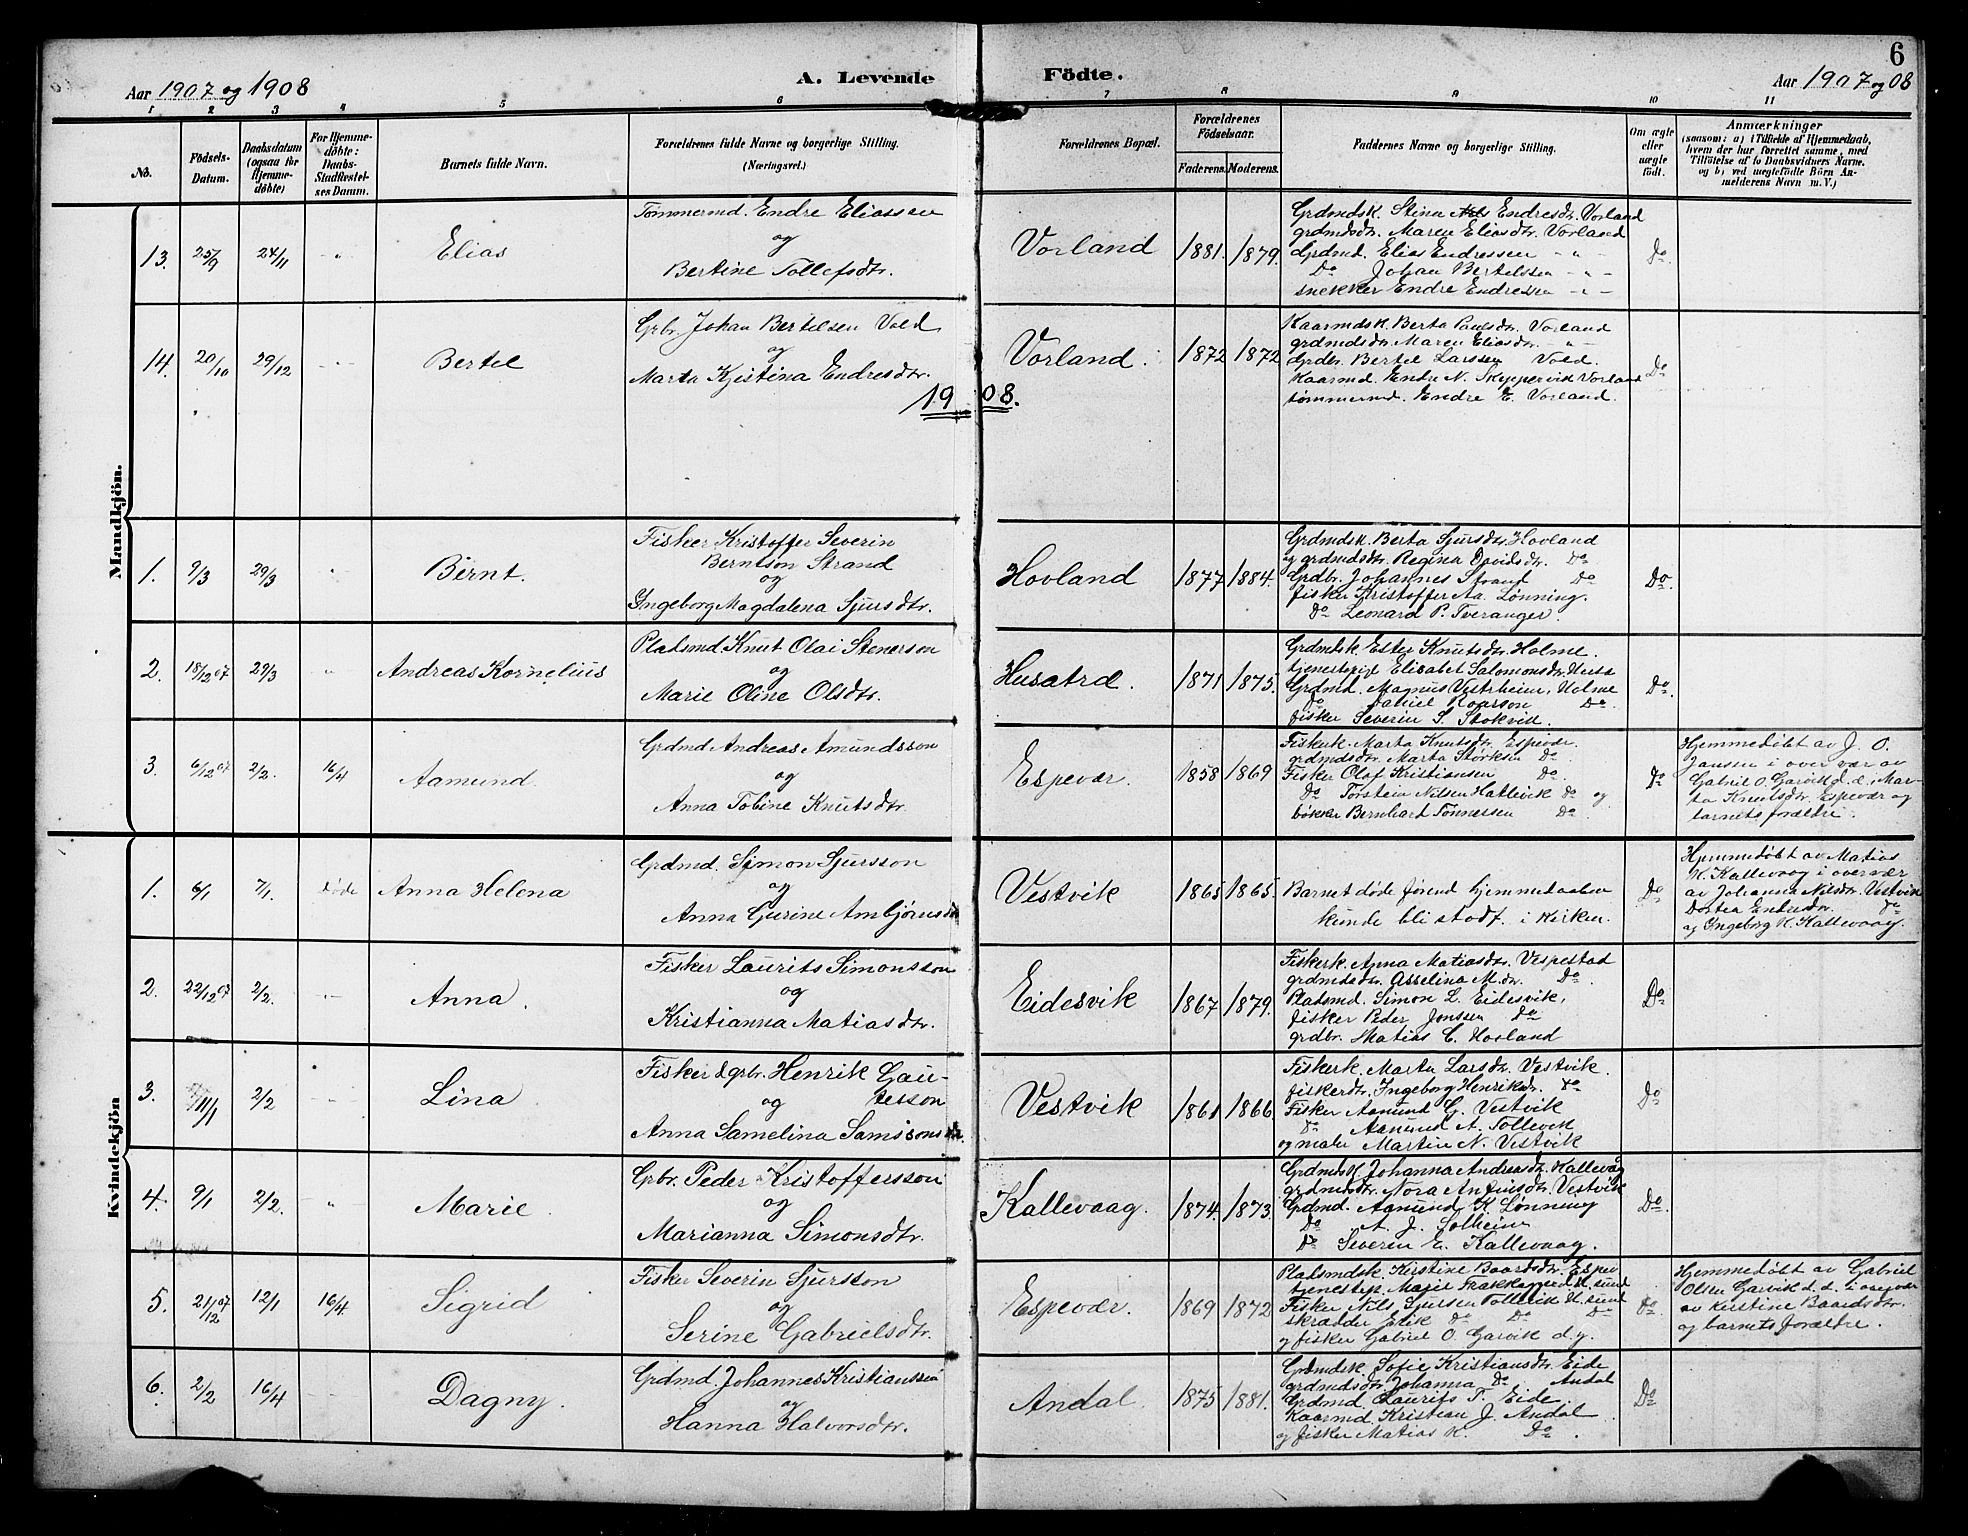 6
Aar 1907 og 1908
A. Levende Födte.
Aar 1907 og 08
1 2 3 4 5 6 7 8 9 10 11
No.
Födsels-Datum.
Daabsdatum (ogsaa for Hjemmedöbte)
For Hjemmedöbte: Daabs-Stadfæstelses Datum.
Barnets fulde Navn.
Forældrenes fulde Navne og borgerlige Stilling. (Næringsvei.)
Forældrenes Bopæl.
Forældrenes Födselsaar.
Faderens. Moderens.
Faddernes Navne og borgerlige Stilling.
Om ægte eller uægte födt.
Anmærkninger
(saasom: a) i Tilfælde af Hjemmedaab,
hvem der har forrettet samme, med
Tilföielse af to Daabsvidners Navne.
og b) ved uegtefödte Börn An-
melderens Navn m. V.)
Mandkjön.
13. 25/9 24/11 - " -
Elias
Tømmermd. Endre Eliassen
og
Bertine Tollefsdtr.
Vorland 1881. 1879.
Grdmdsk. Stina Endresdtr. Vorland
grdmdsdtr. Maren Eliasdtr. Vorland
Grdmd. Elias Endressen - " -
Do Johan Bertelsen - " -
snekker Endre Endressen - " -
Do.
14. 20/10 29/12 - " -
Bertel
Grbr. Johan Bertelsen Vold
og
Marta Kristina Endresdtr.
Vorland. 1872 1872
Kaarmdsk. Berta Paulsdtr. Vorland
grdmdsdtr. Maren Eliasdtr. - " -
Grdbr. Bertel Larssen Vold.
Kaarmd. Endre N. Skyppervik Vorland
tømmermd. Endre E. Vorland.
Do
1908.
1. 9/3 29/3 "
Bernt.
Fisker Kristoffer Severin
Berntson Strand
og
Ingeborg Magdalena Sjursdtr.
Hovland 1877 1884.
Grdmdsk. Berta Sjursdtr. Hovland
og grdmdsdtr. Regina Davidsdtr. Do.
Grdbr. Johannes Strand Do
fisker Kristoffer Aa. Lønning.
Do Leonard P. Tveranger.
Do.
2. 18/12 07 29/3 "
Andreas Kornelius
Pladsmd. Knut Olai Stenerson
og
Marie Oline Olsdtr.
Husatræ. 1871 1875.
Grdmdsk Ester Knutsdtr. Holme.
tjenestepige Elisabet Salomonsdtr. Husa
Grdmd. Magnus Vestrheim, Holme
Do Roarson Do.
fisker Severin S. Stokvik.
Do.
3. 6/12 07 2/2. 16/4
Aamund.
Grdmd Andreas Amundsson
og
Anna Tobine Knutsdtr.
Espevær. 1858 1869
Fiskerk. Marta Knutsdtr. Espevær.
grdmdsdtr. Marta Størksen Do.
Fisker Olaf Kristiansen Do.
Do Torstein Nilsen Hattevik Do og
bøkker Bernhard Tønnessen Do.
Do
Hjemmedøbt av J. O.
Janssen i overvær av
Gabriel O. Garvik d. e. Mar-
ta Knutsdtr. Espevær og
barnets forældre.
Kvindekjön
1. 6/1 7/1. døde
Anna Helena
Grdmd. Simon Sjursson
og
Anna Gurine Ambjørnsdtr
Vestvik 1865 1865.
Barnet døde førend hjemmedaaben
kunde bli stadf. i kirken.
Do
Hjemmedøbt av Matias
K. Kallevaag i overvær
av Johanna Nilsdtr. Vestvik
Dortea Endresdtr. Do
og Ingeborg K. Kallevaag.
2. 22/12 07 2/2. - " -
Anna.
Fisker Laurits Simonsson
og
Kristianna Matiasdtr.
Eidesvik 1867 1879.
Fiskerk. Anna Matiasdtr. Vespestad
grdmdsdtr. Asselina M.dtr. Do.
Pladsmd. Simon L. Eidesvik,
fisker Peder Jonssen Do
grdbr. Matias C. Hovland
Do
3. 11/1 2/2 - " -
Lina
Fisker & grbr. Henrik Gau-
tesson
og
Anna Samelina Samsonsdtr
Vestvik 1861 1866
Fiskerk. Marta Larsdtr. Vestvik.
fiskerdtr. Ingeborg Henriksdtr. Do
Fisker Aamund G. Vestvik
Do Aamund A. Tollevik
og maler Martin N. Vestvik
Do
4. 9/1 2/2. "
Marie.
Grbr. Peder Kristoffersson
og
Marianna Simonsdtr.
Kallevaag. 1874. 1873.
Grdmdsk. Johanna Andreasdtr. Kallevaag
grdmdsdtr. Nora Anfinsdtr. Vestvik
Grdmd. Aamund K. Lønning
Do A. J. Solheim
Do Severin E. Kallevaag.
Do.
5. 21/12 07 12/1 16/4
Sigrid
Fisker Severin Sjursson
og
Serine Gabrielsdtr.
Espevær. 1869 1872
Pladsmdsk. Kirstine Baardsdtr. Espev
tjenestep. Marie H. sund
Fisker Nils Sjursen Tollevik H. sund
skrædder Do Do
og fisker Gabriel O. Garvik d. y.
Do
Hjemmedøbt av Gabriel
Olsen Garvik d. d. i overvær
av Kirstine Baardsdtr.
og barnets forældre.
6. 2/2 16/4 - " -
Dagny.
Grdmd. Johannes Kristianssen
og
Hanna Halvorsdtr.
Andal. 1875 1881.
Grdmdsk. Sofie Kristiansdtr. Eide
grdmdsdtr. Johanna Do Andal
Grdmd. Laurits T. Eide.
Kaarmd. Kristian J. Andal
og fisker Matias K. Do.
Do